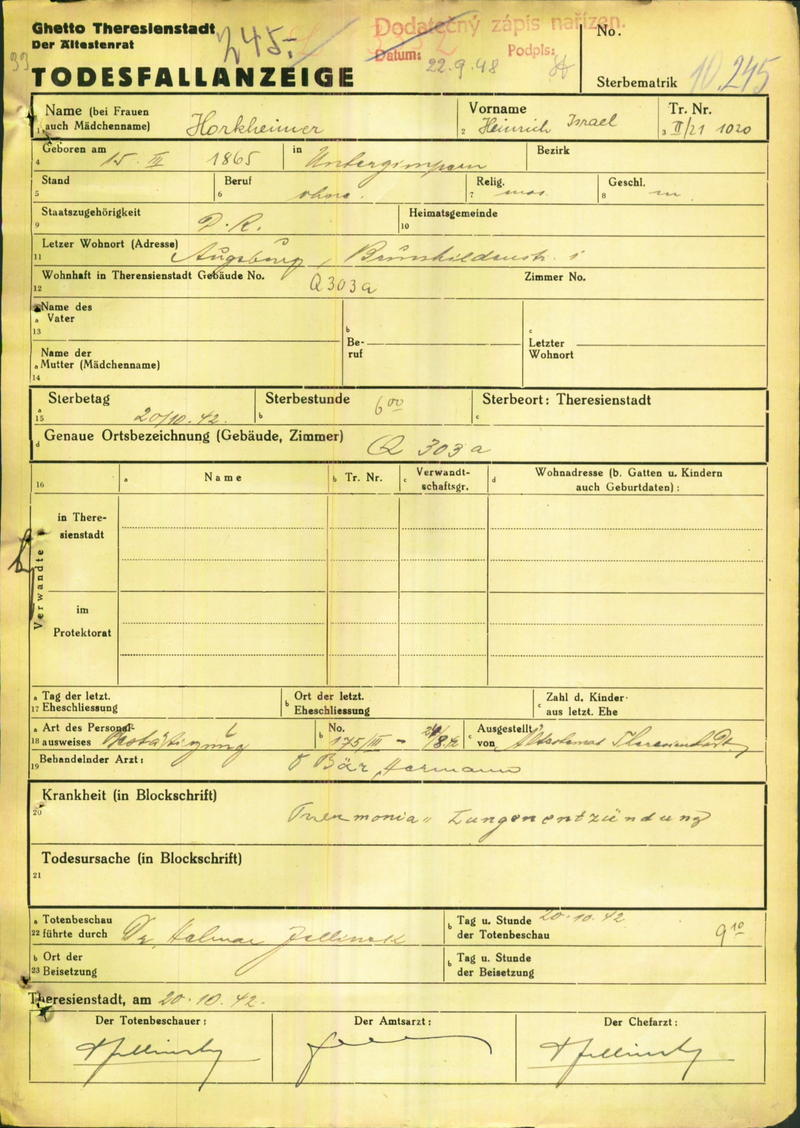 Ghetto Theresienstadt
Der Ältestenrat
TODESFALLANZEIGE
245.-
Dodatečný zápis nařízen.
Datum: 22.9.48 Podpis:
No.
Sterbematrik 10.245
Name (bei Frauen auch Mädchenname) Horkheimer
1
2 Vorname Heinrich Israel
3 Tr. Nr. II/21 1020
4 Geboren am 15. III 1865 in Untergimpern Bezirk
5 Stand
6 Beruf ohne.
7 Relig. mos.
8 Geschl. m.
9 Staatszugehörigkeit D.R.
10 Heimatsgemeinde
11 Letzer Wohnort (Adresse) Augsburg, Brunhildenstr. 1
12 Wohnhaft in Therensienstadt Gebäude No. Q303a Zimmer No.
13 a Name des Vater
b Beruf
c Letzter Wohnort
14 a Name der Mutter (Mädchenname)
15 a Sterbetag 20/10.42.
b Sterbestunde 6 00
c Sterbeort: Theresienstadt
d Genaue Ortsbezeichnung (Gebäude, Zimmer) Q 303a
16 a Name b Tr. Nr. c Verwandtschaftsgr. d Wohnadresse (b. Gatten u. Kindern auch Geburtdaten):
Verwandte
in Theresienstadt
im Protektorat
17 a Tag der letzt. Eheschliessung
b Ort der letzt. Eheschliessung
c Zahl d. Kinder aus letzt. Ehe
18 a Art des Personalausweises Bestätigung
b No. 175/III -
c Ausgestellt von Theresienstadt
19 Behandelnder Arzt: Bär Hermann
20 Krankheit (in Blockschrift) Lungenentzündung
21 Todesursache (in Blockschrift)
22 a Totenbeschau führte durch Dr Jellinek
b Tag u. Stunde der Totenbeschau 20.10.42 9 10
23 b Ort der Beisetzung
b Tag u. Stunde der Beisetzung
Theresienstadt, am 20.10.42.
Der Totenbeschauer: Der Amtsarzt: Der Chefarzt: